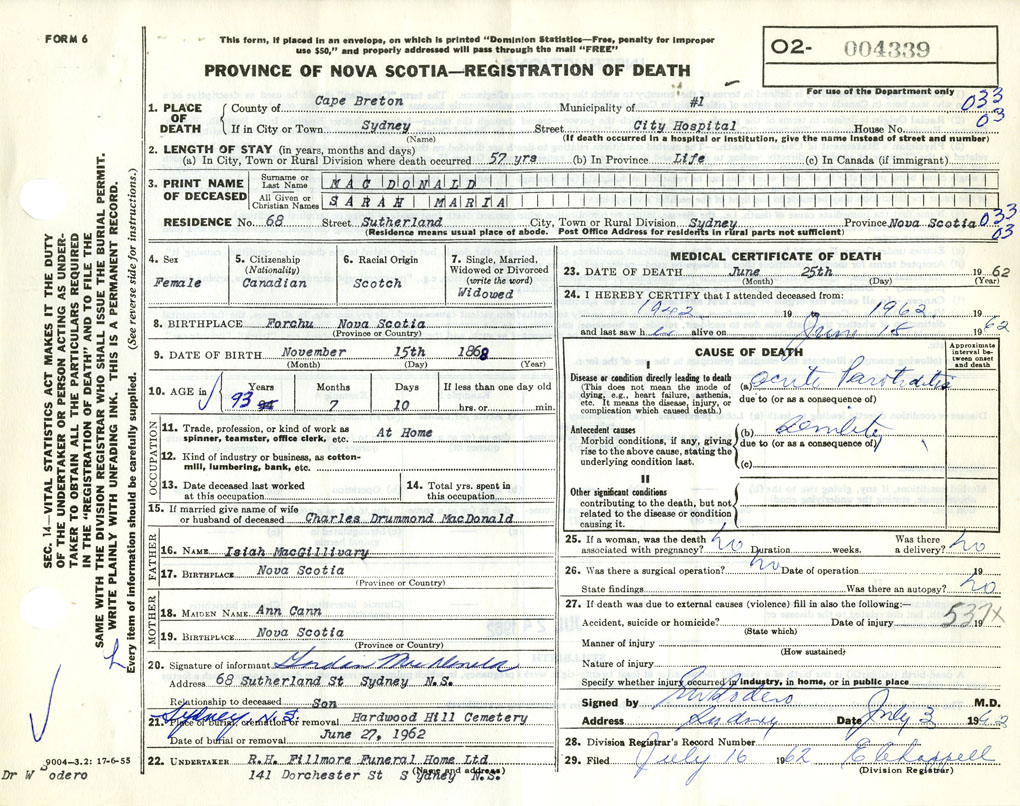 FORM 6
This form, if placed in an envelope, on which is printed "Dominion Statistics—Free, penalty for improper
use $50," and properly addressed will pass through the mail "FREE"
PROVINCE OF NOVA SCOTIA—REGISTRATION OF DEATH
O2- 004339
For use of the Department only
1. PLACE OF DEATH County of Cape Breton Municipality of #1 033
If in City or Town Sydney Street City Hospital House No. 03
(Name) (If death occurred in a hospital or institution, give the name instead of street and number)
2. LENGTH OF STAY (in years, months and days)
(a) In City, Town or Rural Division where death occurred 57 yrs (b) In Province Life (c) In Canada (if immigrant)
3. PRINT NAME OF DECEASED Surname or Last Name MAC DONALD
All Given or Christian Names SARAH MARIA
RESIDENCE No. 68 Street Sutherland City, Town or Rural Division Sydney Province Nova Scotia 033
(Residence means usual place of abode. Post Office Address for residents in rural parts not sufficient) 03
4. Sex Female
5. Citizenship (Nationality) Canadian
6. Racial Origin Scotch
7. Single, Married, Widowed or Divorced (write the word) Widowed
8. BIRTHPLACE Forchu Nova Scotia
(Province or Country)
9. DATE OF BIRTH November 15th 1868
(Month) (Day) (Year)
10. AGE in Years Months Days If less than one day old
93 94 7 10 hrs. or min.
OCCUPATION
11. Trade, profession, or kind of work as spinner, teamster, office clerk, etc. At Home
12. Kind of industry or business, as cotton-mill, lumbering, bank, etc.
13. Date deceased last worked at this occupation
14. Total yrs. spent in this occupation
15. If married give name of wife or husband of deceased Charles Drummond MacDonald
FATHER
16. NAME Isiah MacGillivary
17. BIRTHPLACE Nova Scotia
(Province or Country)
MOTHER
18. MAIDEN NAME Ann Cann
19. BIRTHPLACE Nova Scotia
(Province or Country)
20. Signature of informant Gordon MacDonald
Address 68 Sutherland St Sydney N.S.
Relationship to deceased Son
Sydney N.S.
21. Place of burial, cremation or removal Hardwood Hill Cemetery
Date of burial or removal June 27, 1962
22. UNDERTAKER R.H. Fillmore Funeral Home Ltd
(Name and address)
141 Dorchester St Sydney N.S.
MEDICAL CERTIFICATE OF DEATH
23. DATE OF DEATH June 25th 1962
(Month) (Day) (Year)
24. I HEREBY CERTIFY that I attended deceased from:
1942 19 to 1962 19
and last saw her alive on June 18 1962
CAUSE OF DEATH
Approximate interval between onset and death
I
Disease or condition directly leading to death
(This does not mean the mode of dying, e.g., heart failure, asthenia, etc. It means the disease, injury, or complication which caused death.)
(a) acute Parotiditis
due to (or as a consequence of)
Antecedent causes
Morbid conditions, if any, giving rise to the above cause, stating the underlying condition last.
(b) Senility
due to (or as a consequence of)
(c)
II
Other significant conditions
contributing to the death, but not related to the disease or condition causing it.
25. If a woman, was the death associated with pregnancy? no Duration weeks. Was there a delivery? no
26. Was there a surgical operation? no Date of operation 19
State findings Was there an autopsy? no
27. If death was due to external causes (violence) fill in also the following:—
Accident, suicide or homicide? Date of injury 19
(State which) 537X
Manner of injury
(How sustained)
Nature of injury
Specify whether injury occurred in industry, in home, or in public place
Signed by M.D.
Address Sydney Date July 3 1962
28. Division Registrar's Record Number
29. Filed July 16 1962 E C Chappell
(Division Registrar)
SEC. 14—VITAL STATISTICS ACT MAKES IT THE DUTY
OF THE UNDERTAKER OR PERSON ACTING AS UNDER-
TAKER TO OBTAIN ALL THE PARTICULARS REQUIRED
IN THE "REGISTRATION OF DEATH" AND TO FILE THE
SAME WITH THE DIVISION REGISTRAR WHO SHALL ISSUE THE BURIAL PERMIT.
WRITE PLAINLY WITH UNFADING INK. THIS IS A PERMANENT RECORD.
Every item of information should be carefully supplied. (See reverse side for instructions.)
9004—3.2: 17-6-55
Dr W Sodero